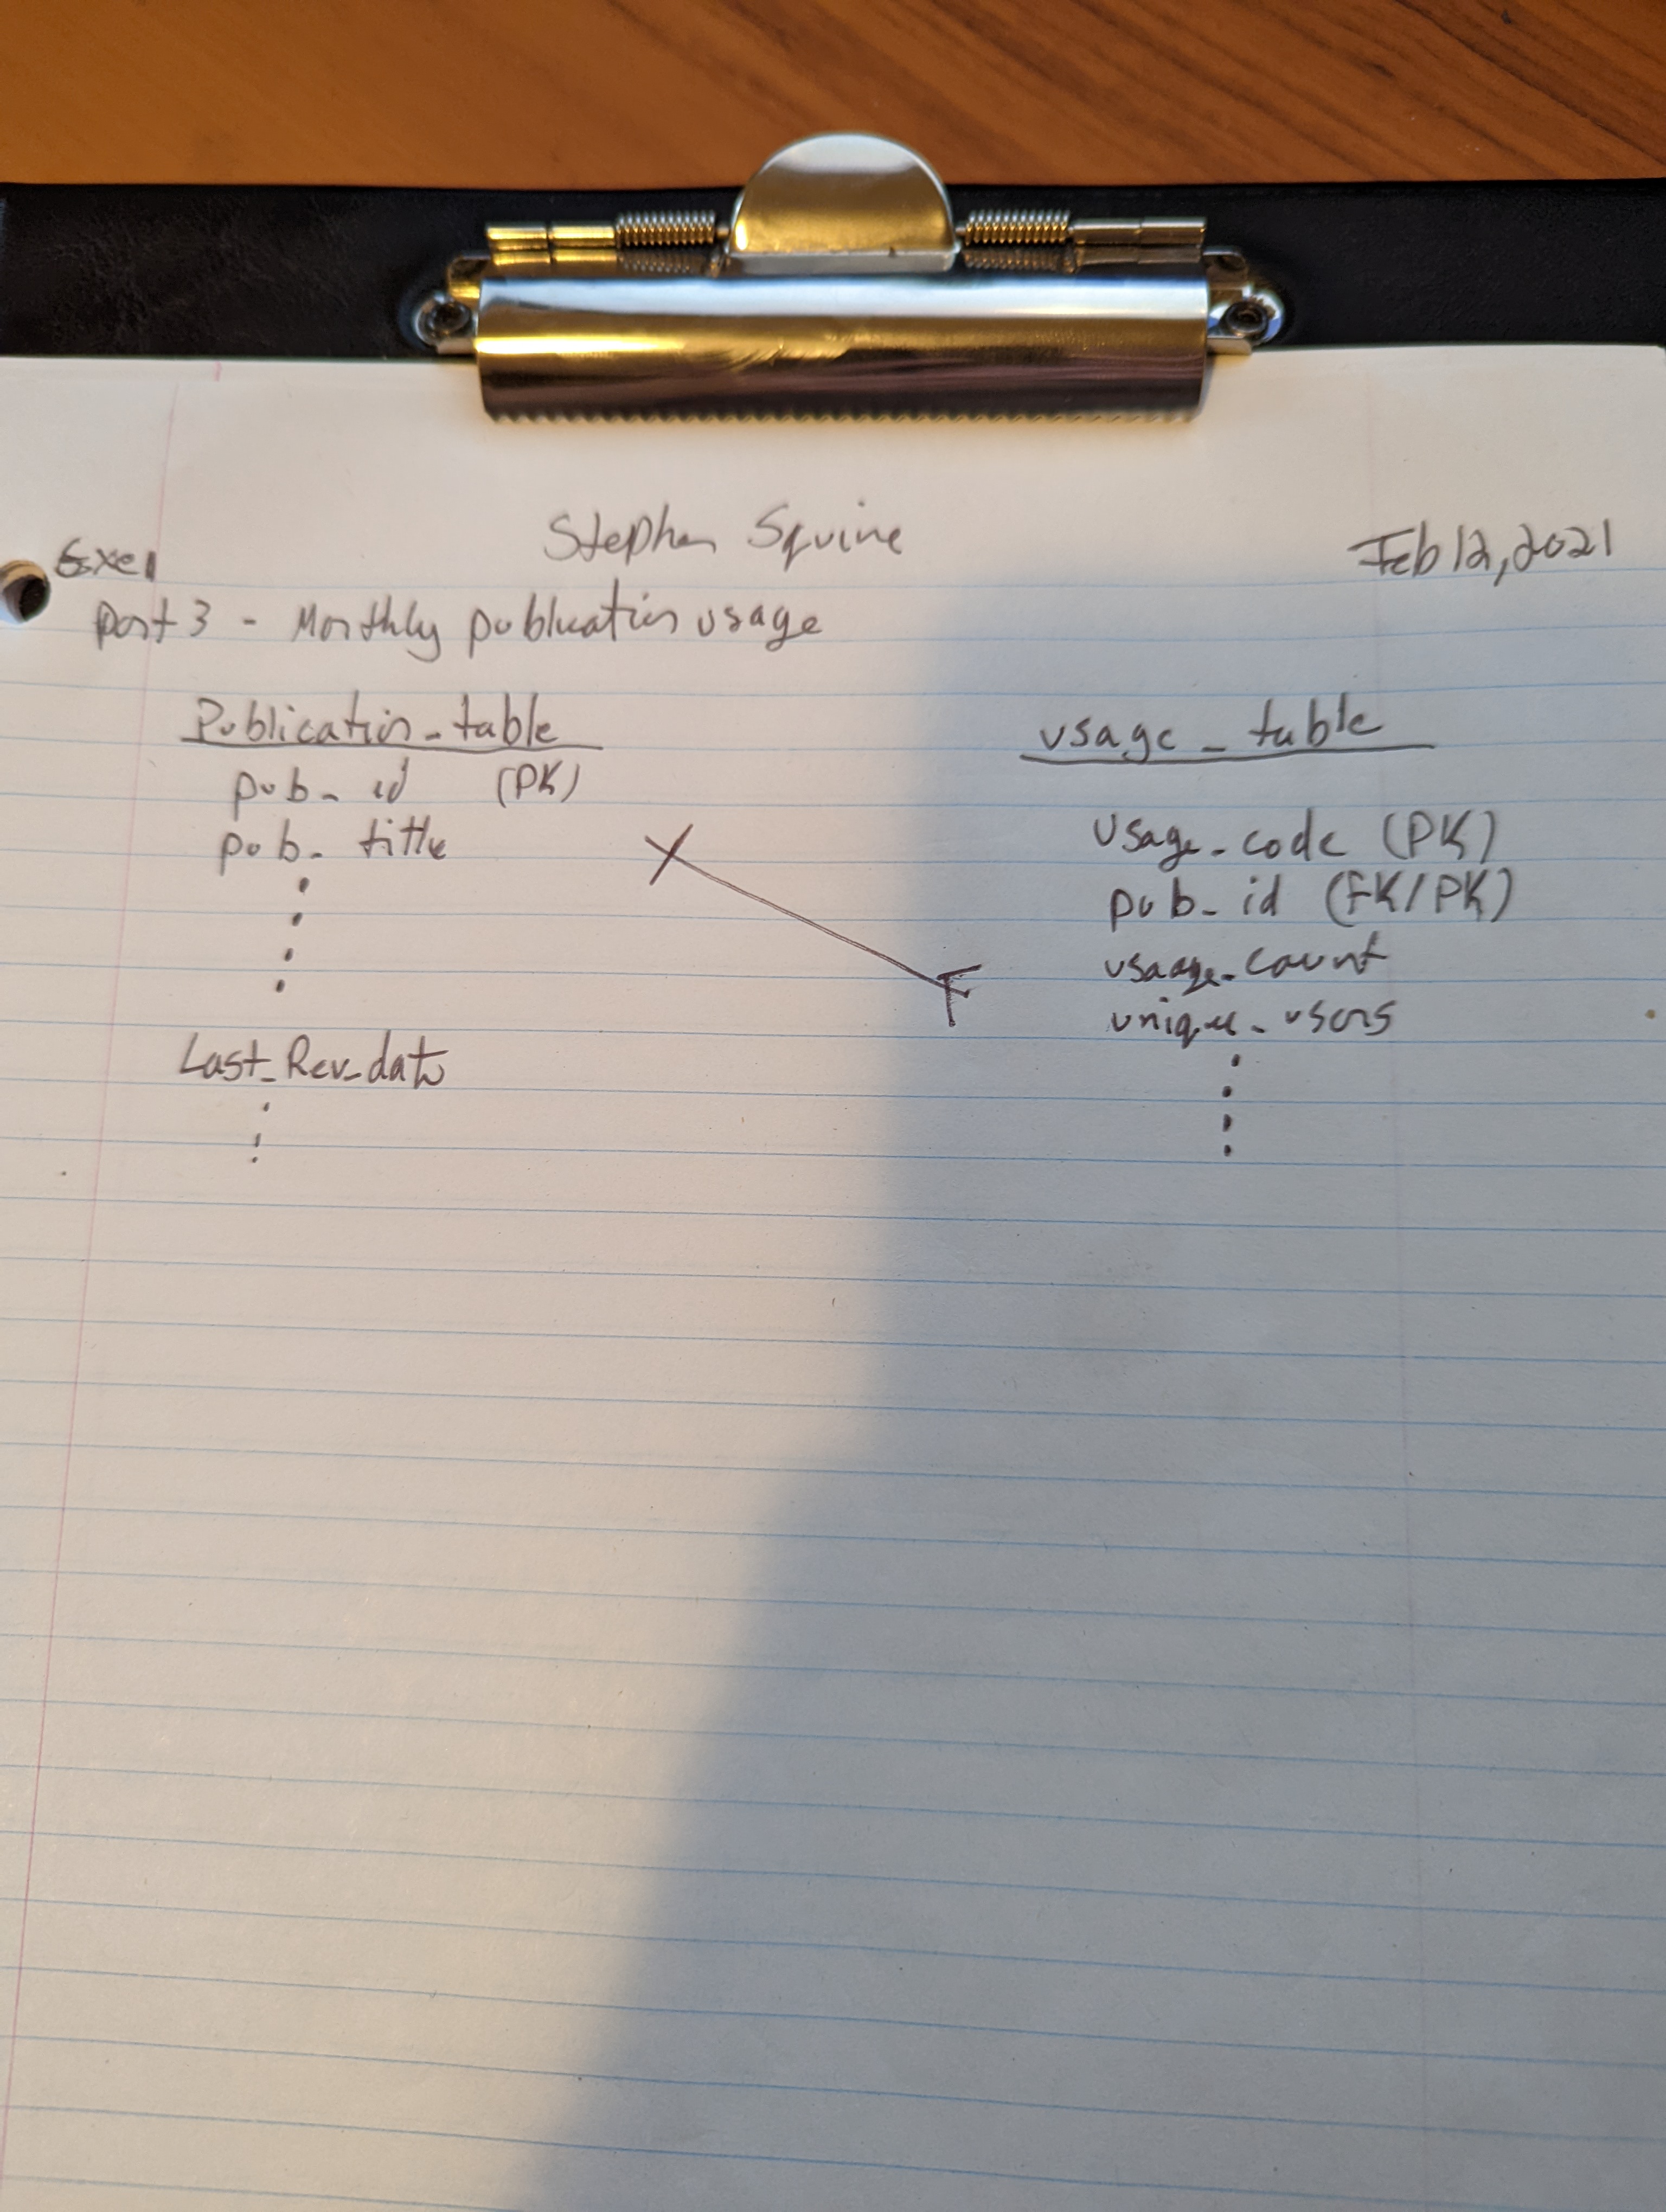 Stephen Squire
Feb 12, 2021
Exe1
Part 3 - Monthly publication usage
Publication_table
pub_id (PK)
pub_title
Last_Rev_date
usage_table
Usage_code (PK)
pub_id (FK/PK)
usage_count
unique_users